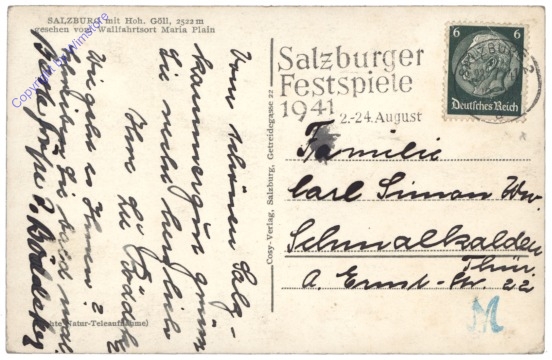 SALZBURG mit Hoh. Göll, 2522 m
gesehen vom Wallfahrtsort Maria Plain
Vom schönen Salz-
kammergut grüßen
Sie recht herzlich
Ihre
Wie geht es Ihnen?
Schreiben Sie bald mal.
Beste Grüße
Echte Natur-Teleaufnahme)
Cosy-Verlag, Salzburg, Getreidegasse 22
Salzburger
Festspiele
1941
2.-24. August
6 6
Deutsches Reich
SALZBURG 2
Familie
Carl Simon Ww.
Schmalkalden
Thür.
A. Ernst-Str. 22
M
Copyright by Wimstore